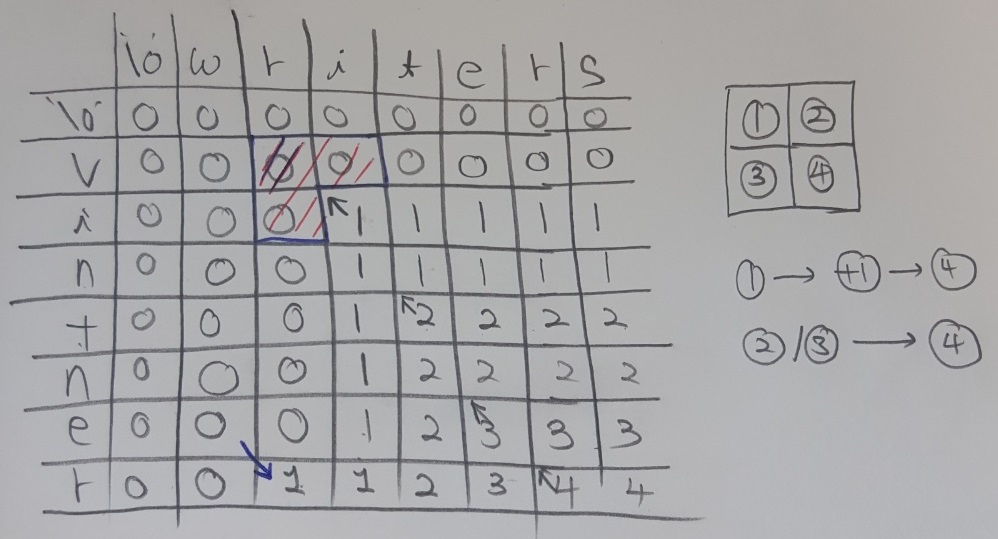 \0 w r i t e r s
\0 0 0 0 0 0 0 0 0
v 0 0 0 0 0 0 0 0
i 0 0 0 1 1 1 1 1
n 0 0 0 1 1 1 1 1
t 0 0 0 1 2 2 2 2
n 0 0 0 1 2 2 2 2
e 0 0 0 1 2 3 3 3
r 0 0 1 1 2 3 4 4
① ②
③ ④
① → +1 → ④
② / ③ → ④